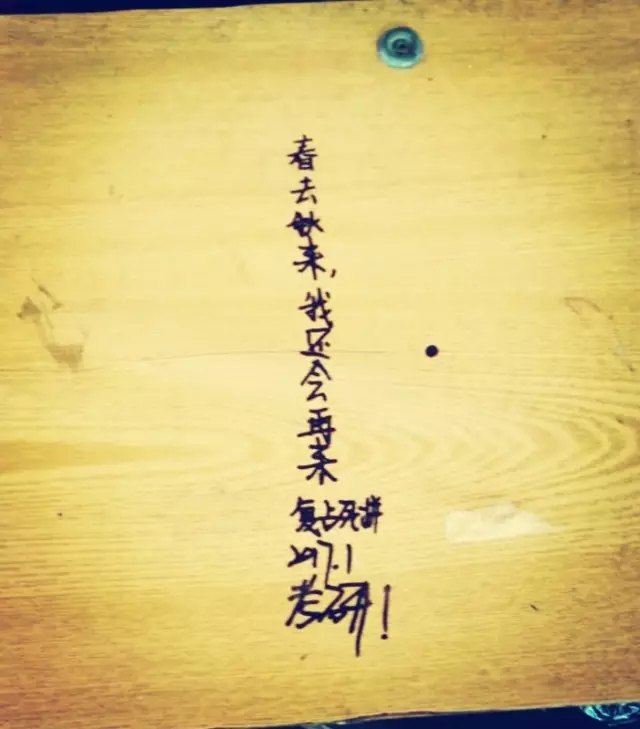 春去秋来，我还会再来
复占死拼
2017.1
考研！